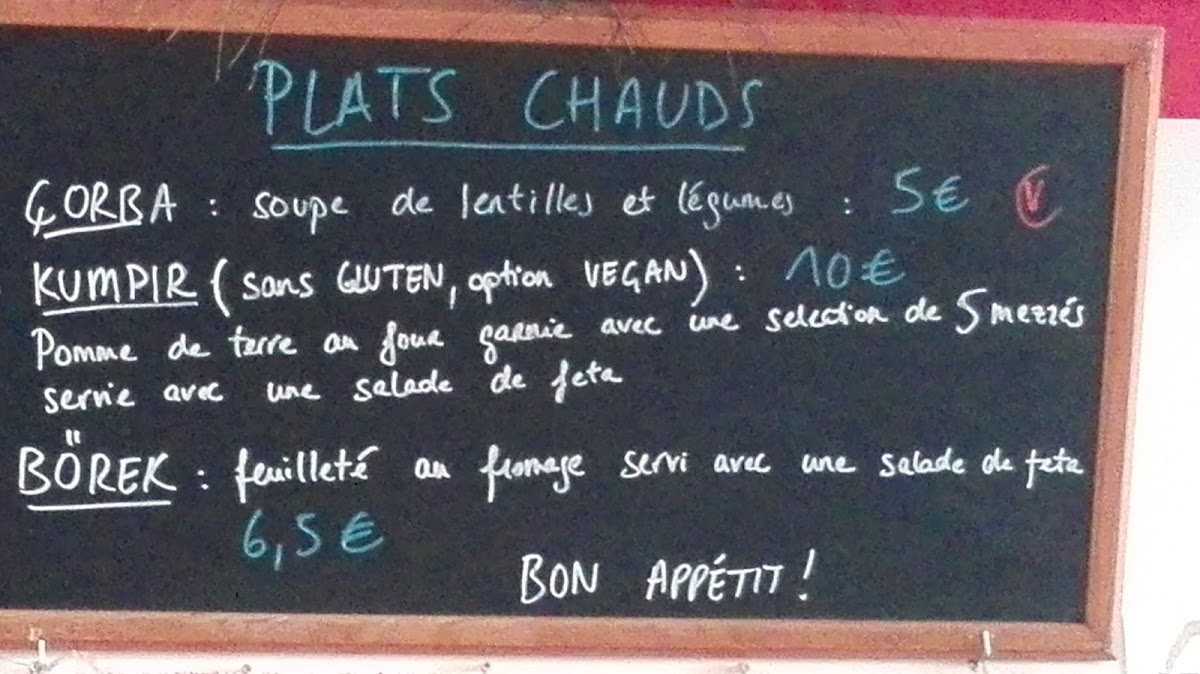 PLATS CHAUDS
ÇORBA : soupe de lentilles et légumes : 5€ V
KUMPIR (sans GLUTEN, option VEGAN) : 10€
Pomme de terre au four garnie avec une selection de 5 mezzés
servie avec une salade de feta
BÖREK : feuilleté au fromage servi avec une salade de feta
6,5€
BON APPÉTIT !